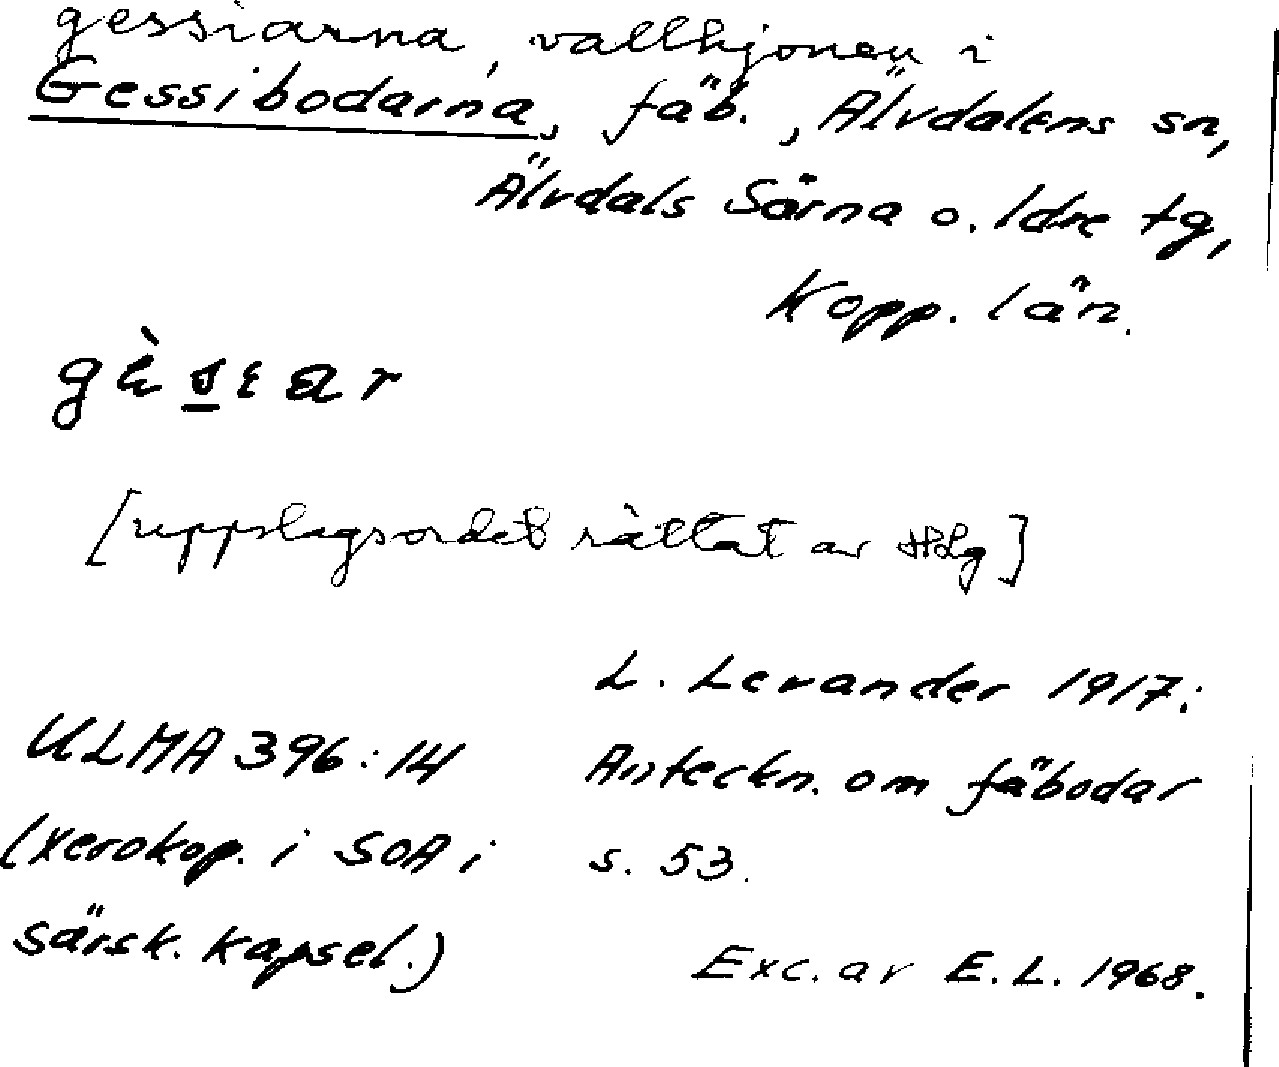 gessiarna, vallhjonen i
Gessibodarna, fäb., Älvdalens sn,
Älvdals Särna o. Idre tg,
Kopp. län.
[uppslagsordet rättat av HLg]
L. Levander 1917:
ULMA 396:14 Anteckn. om fäbodar
(xerokop. i SOA i s. 53.
särsk. kapsel.)
Exc. av E.L. 1968.